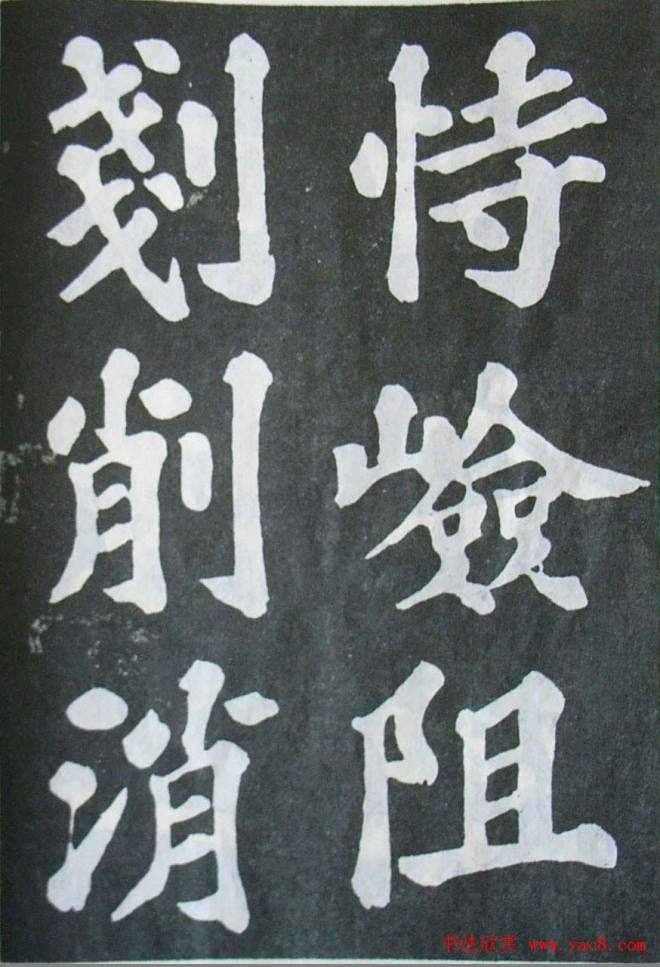 恃嶮阻
剗削消
书法欣赏 www.yac8.com